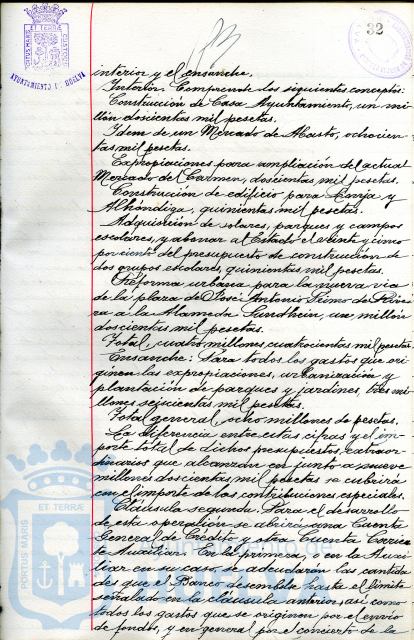 32
PORTUS MARIS ET TERRÆ CUSTODIA
AYUNTAMIENTO DE HUELVA
interior y el ensanche.
Interior. Comprende los siguientes conceptos:
Construcción de Casa Ayuntamiento, un mi-
llón doscientas mil pesetas.
Idem de un Mercado de Abasto, ochocien-
tas mil pesetas.
Expropiaciones para ampliación del actual
Mercado del Carmen, doscientas mil pesetas.
Construcción de edificio para Lonja y
Alhóndiga, quinientas mil pesetas.
Adquisición de solares, parques y campos
escolares, y abonar al Estado el veinte y cinco
por ciento del presupuesto de construcción de
dos grupos escolares, quinientas mil pesetas.
Reforma urbana para la nueva via
de la plaza de José Antonio Primo de Rive-
ra a la Alameda Sundheim, un millón
doscientas mil pesetas.
Total, cuatro millones cuatrocientas mil pesetas.
Ensanche: Para todos los gastos que ori-
ginen las expropiaciones, urbanización y
plantación de parques y jardines, tres mi-
llones seiscientas mil pesetas.
Total general, ocho millones de pesetas.
La diferencia entre estas cifras y el im-
porte total de dichos presupuestos extraor-
dinarios que alcanzan en junto a nueve
millones doscientas mil pesetas se cubrirá
con el importe de las contribuciones especiales.
Cláusula segunda: Para el desarrollo
de esta operación se abrirá una Cuenta
General de Crédito y otra Cuenta Corrien-
te Auxiliar. En la primera o en la Auxi-
liar en su caso se adeudarán las cantida-
des que el Banco desembolse hasta el limite
señalado en la cláusula anterior, así como
todos los gastos que se originen por el envío
de fondos, y en general por concierto de la
PORTUS MARIS ET TERRÆ